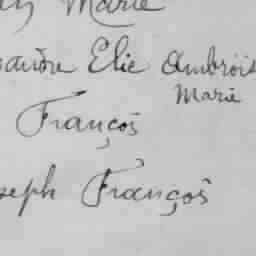 Marie
Elie Ambrois
Marie
François
seph François